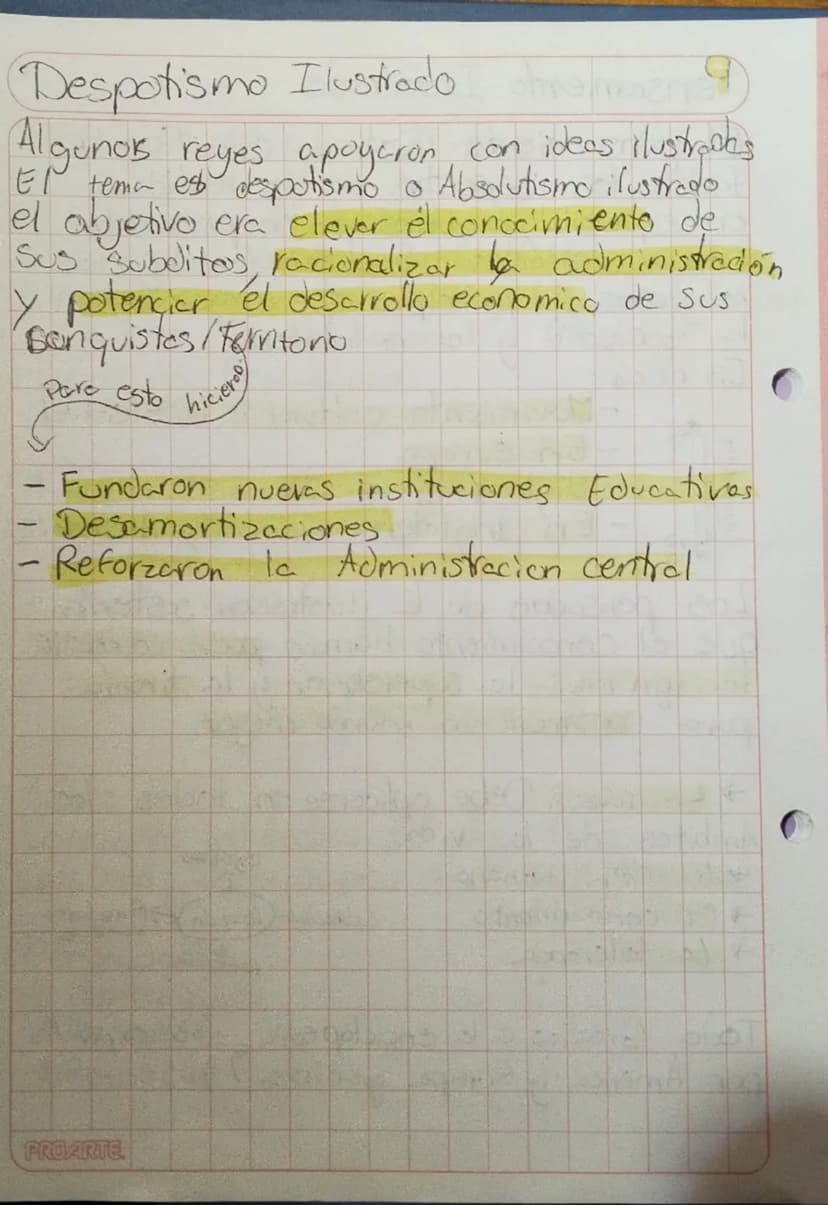 Despotismo Ilustrado 9
Algunos reyes apoyaron con ideas ilustradas
El tema es despotismo o Absolutismo ilustrado
el objetivo era elever el conocimiento de
sus subditos, racionalizar la administración
y potencier el desarrollo economico de sus
conquistas/Territorio
Para esto hicieron
- Fundaron nuevas instituciones Educativas
- Desamortizaciones
- Reforzaron la Administracion central
PROARTE